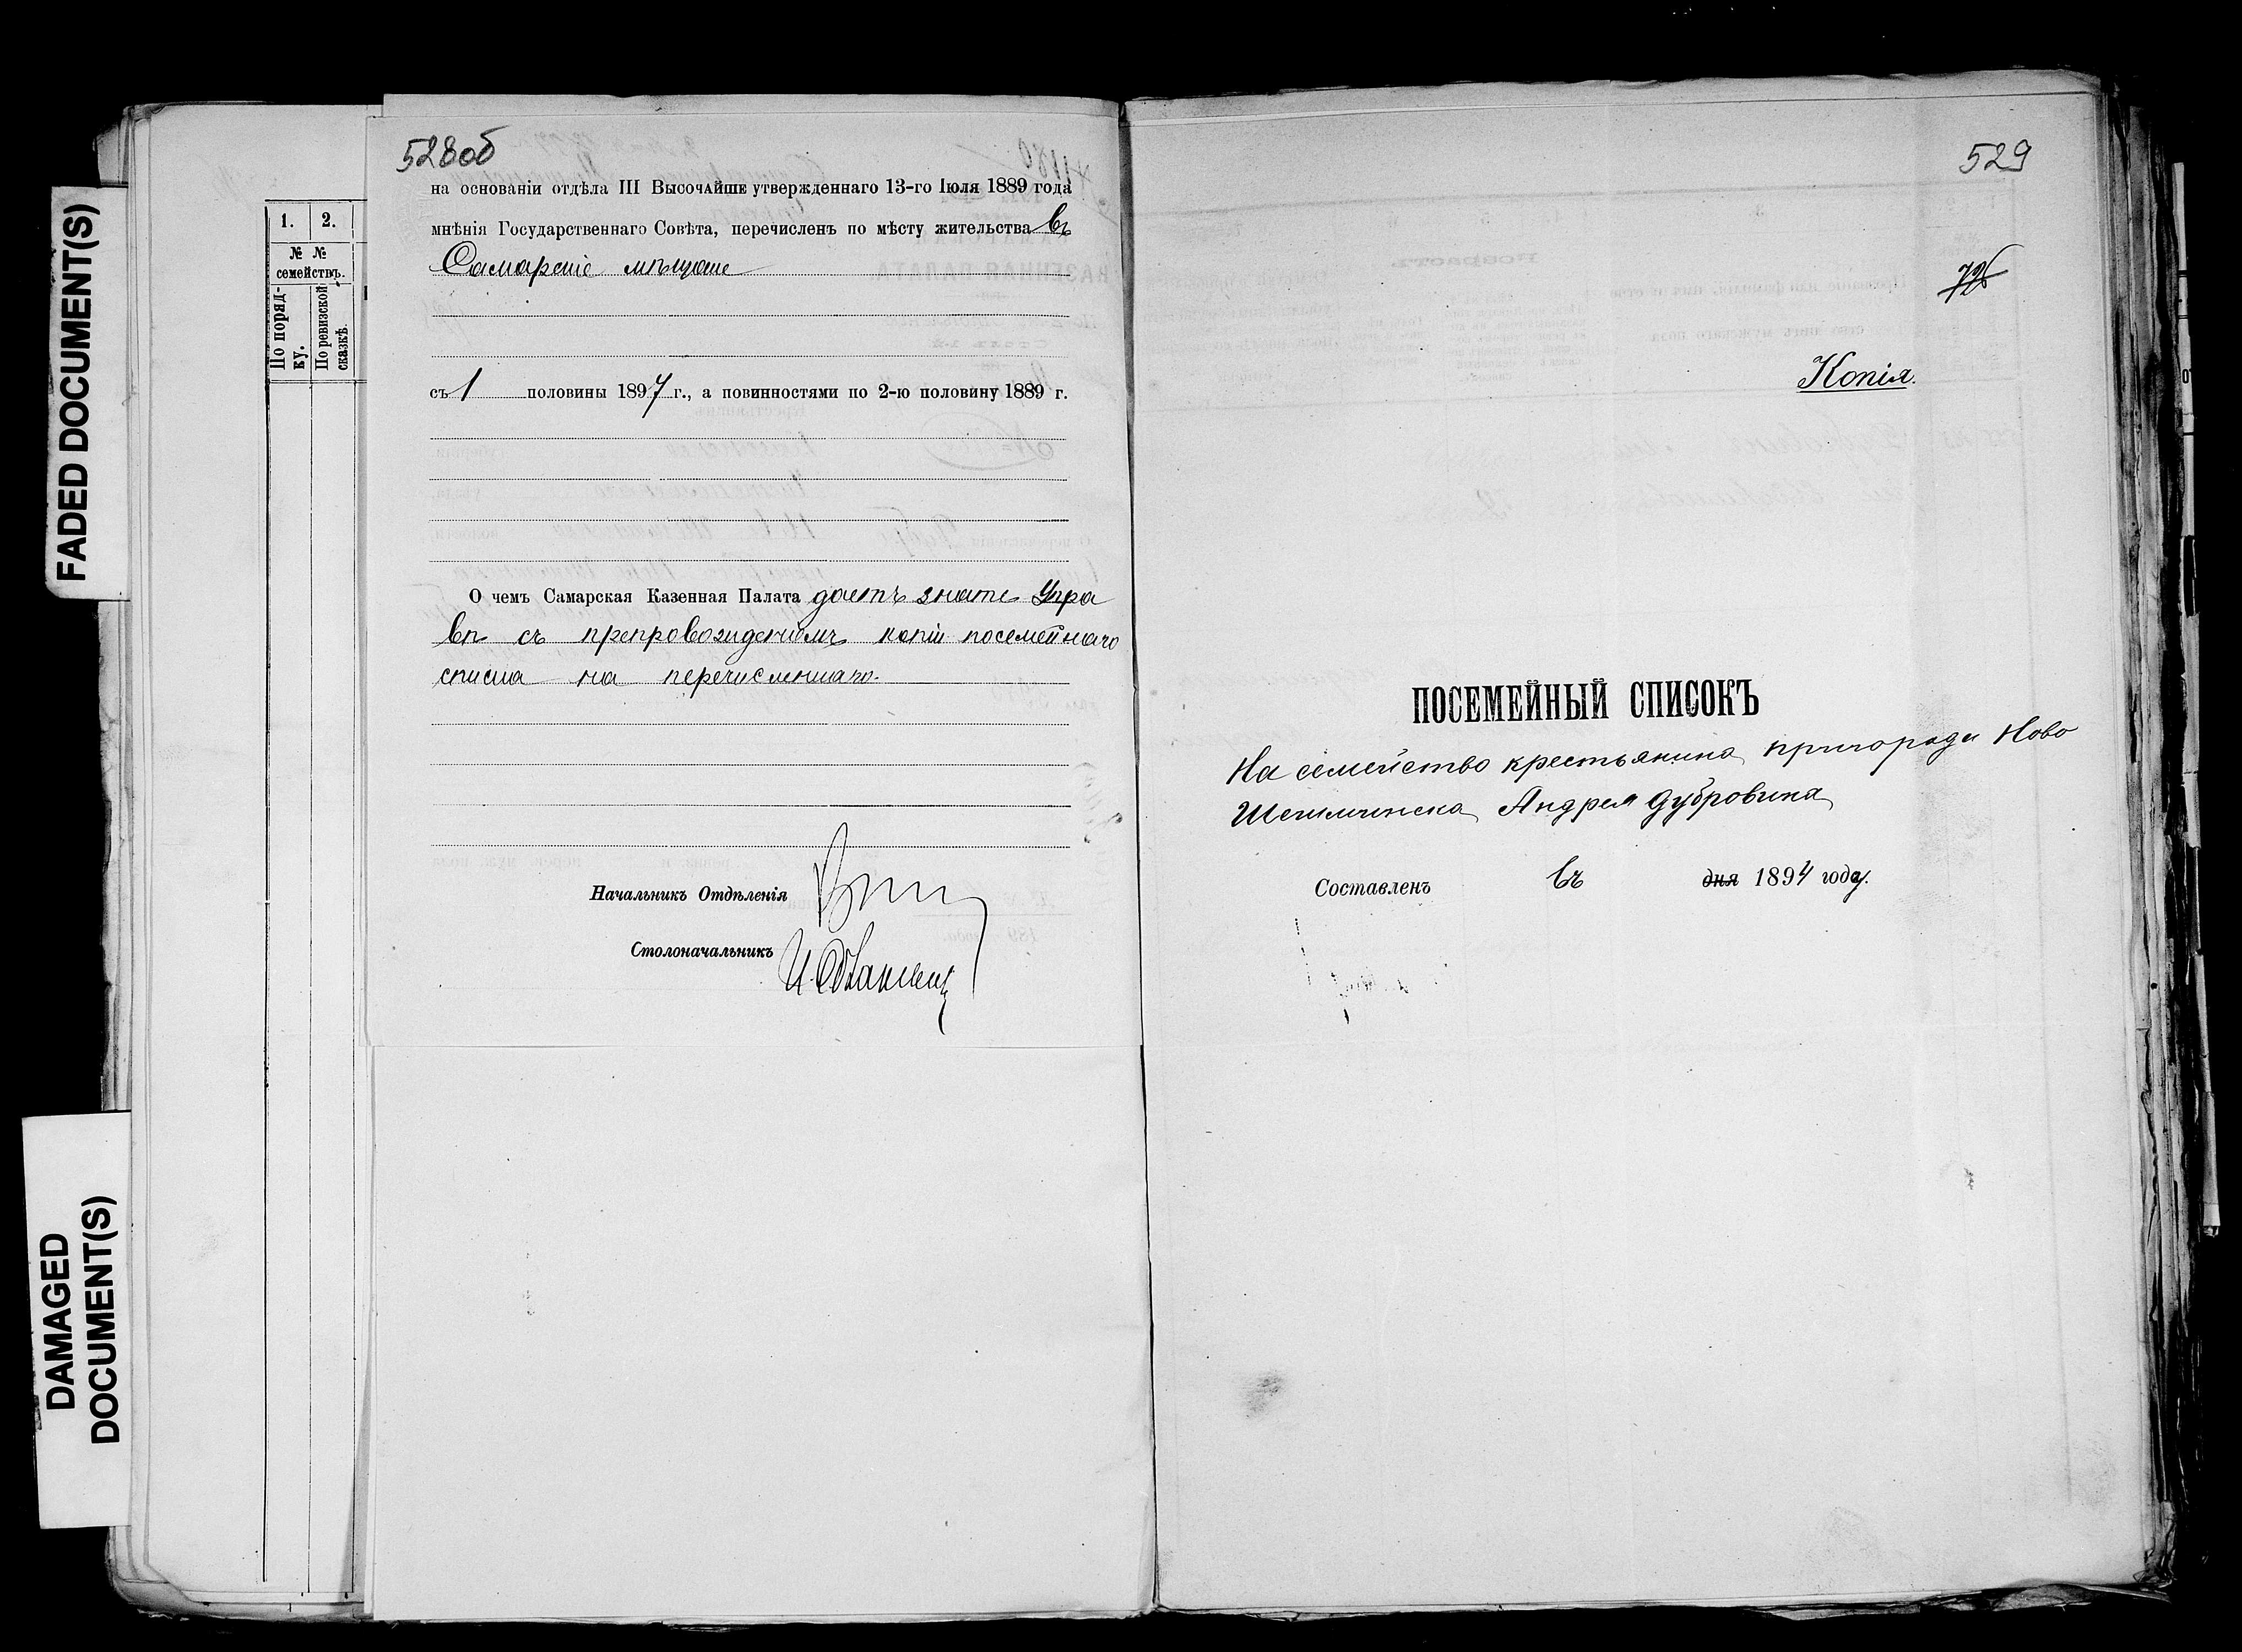 FADED DOCUMENT(S)
DAMAGED
DOCUMENT(S)
1. 2.
№ №
семействъ.
По поряд-
ку.
По ревизской
сказкѣ.
528об
на основаніи отдѣла III Высочайше утвержденнаго 13-го Іюля 1889 года
мнѣнія Государственнаго Совѣта, перечисленъ по мѣсту жительства въ
Самарскіе мѣщане
съ 1 половины 1897 г., а повинностями по 2-ю половину 1889 г.
О чемъ Самарская Казенная Палата даетъ знать Упра
вѣ съ препровожденіемъ копіи посемейнаго
списка на перечисленнаго.
Начальникъ Отдѣленія
Столоначальникъ
529
Копія.
ПОСЕМЕЙНЫЙ СПИСОКЪ
На семейство крестьянина пригорода Ново
Шешминска Андрея Дубровина
Составленъ въ дня 1894 году.